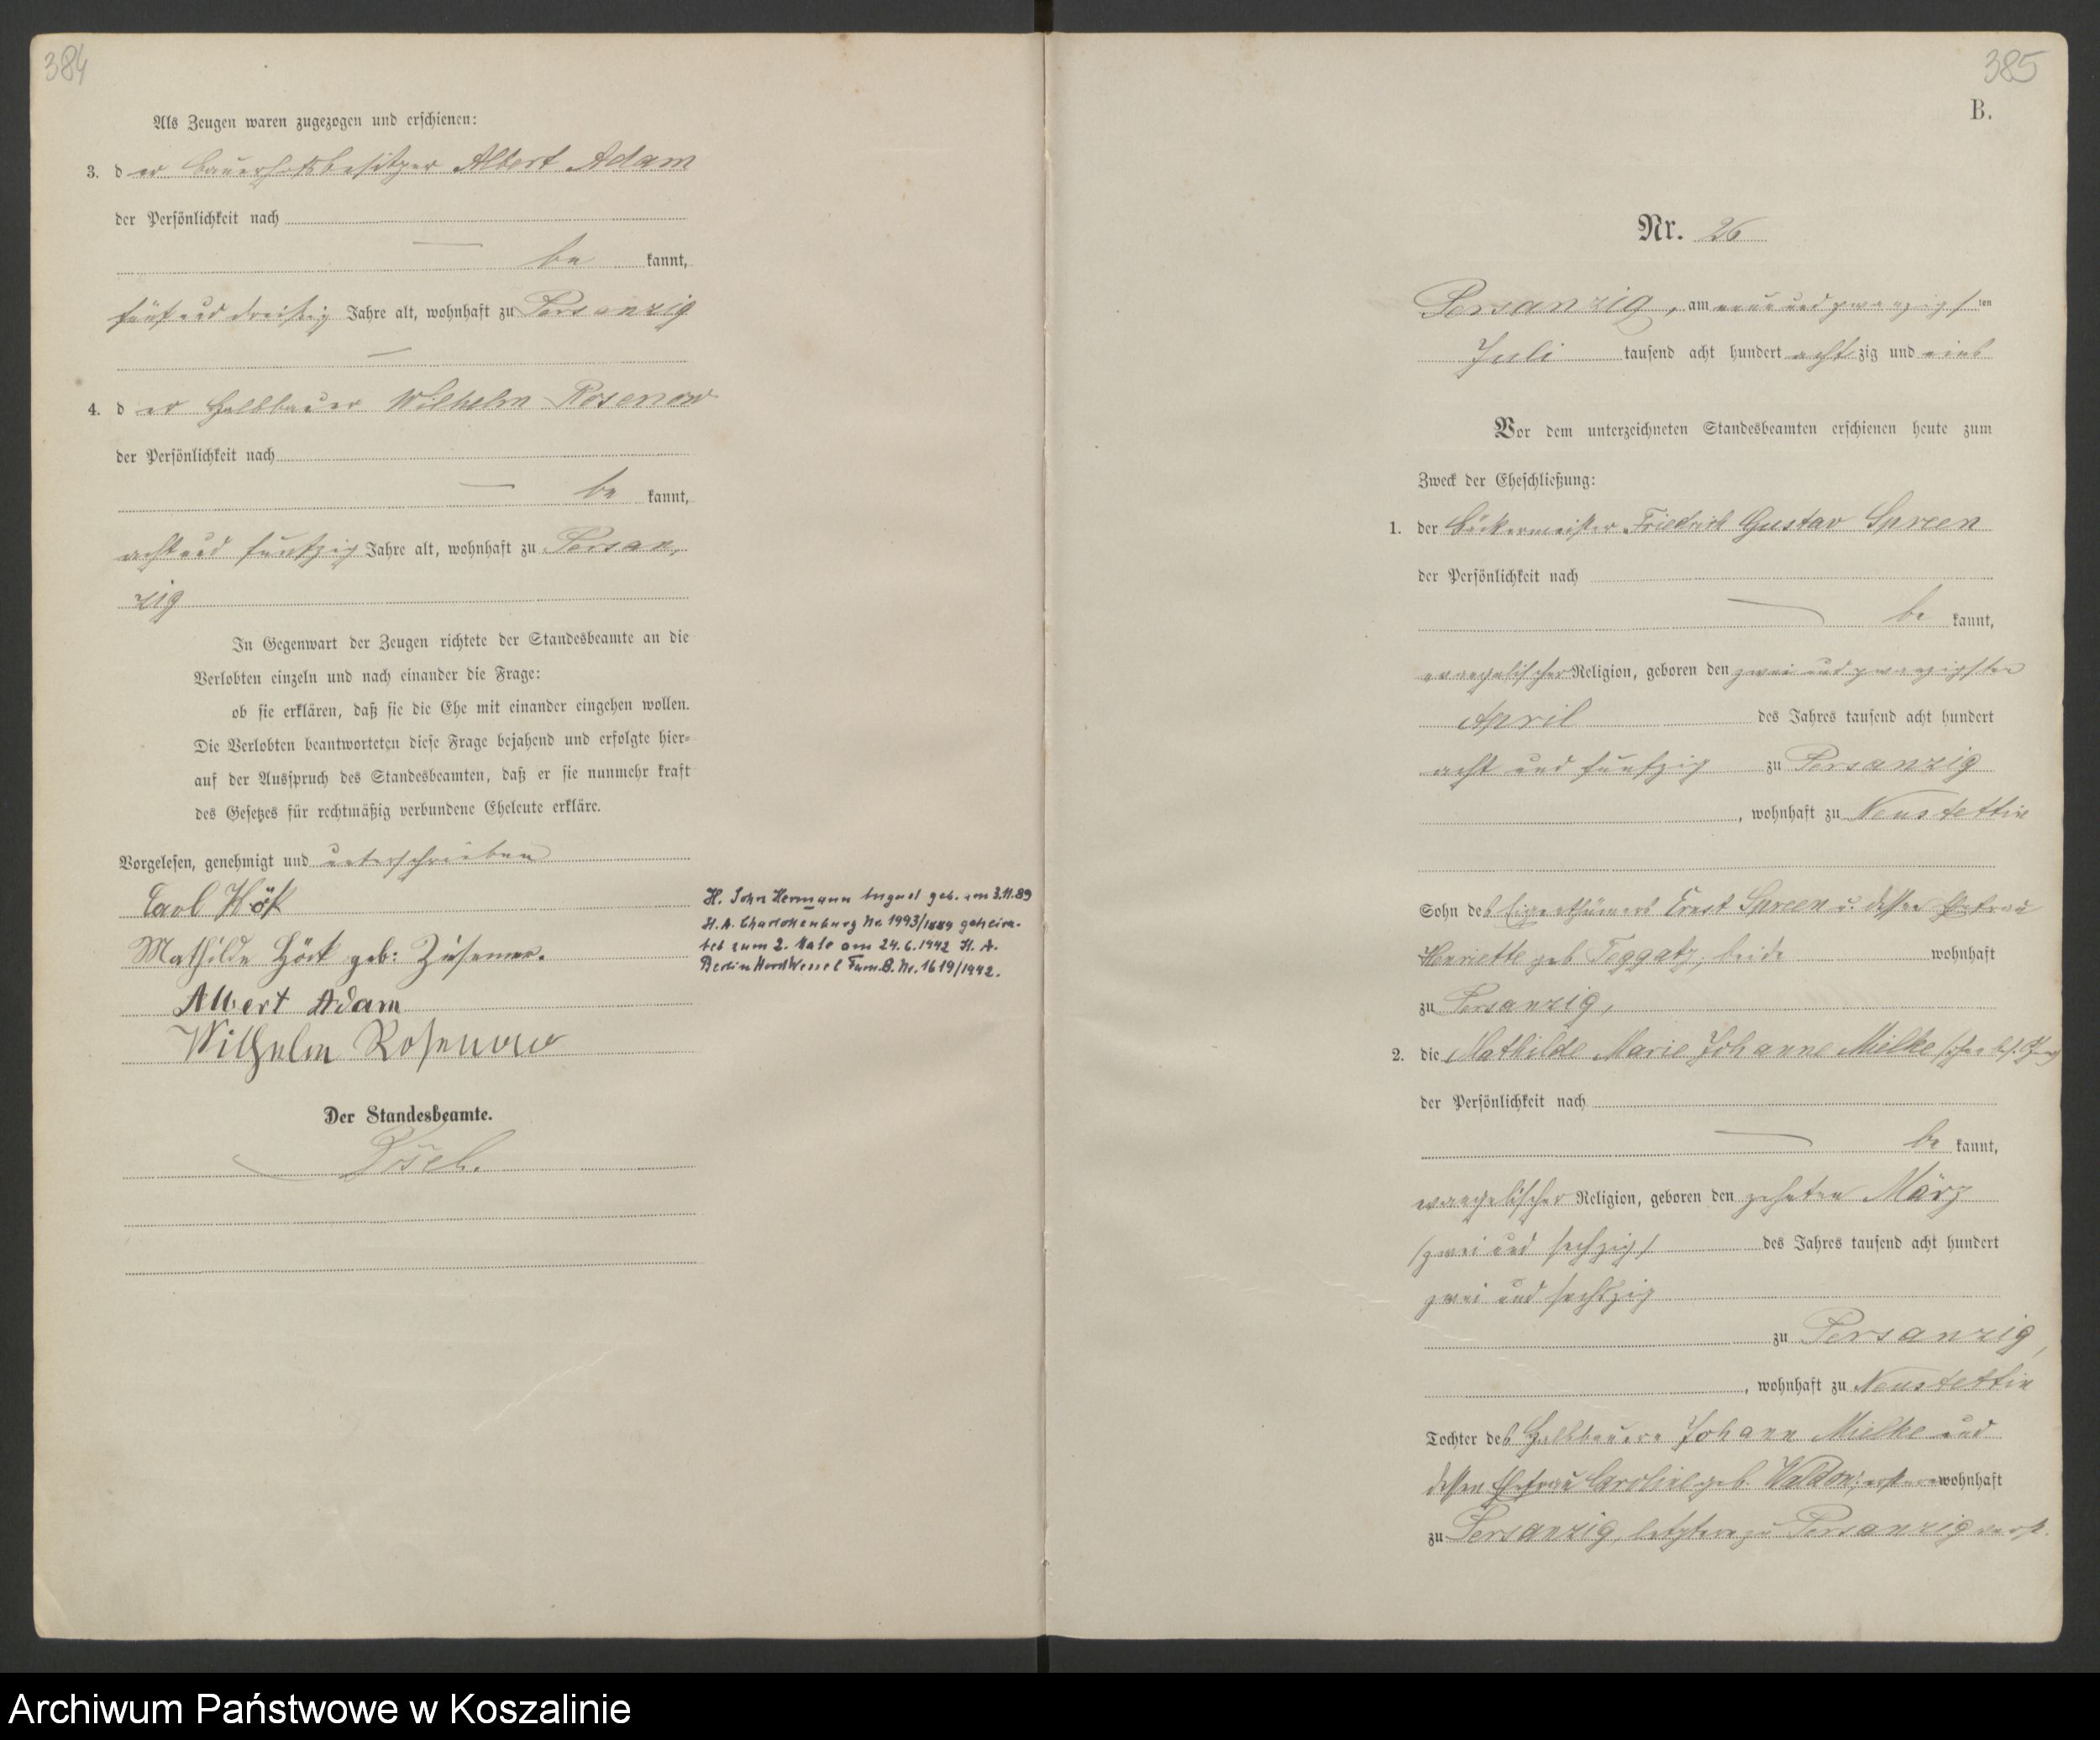 384
Als Zeugen waren zugezogen und erschienen:
3. der Bauerhofsbesitzer Albert Adam
der Persönlichkeit nach
— be kannt,
fünf und dreißig Jahre alt, wohnhaft zu Persanzig
—
4. der Halbbauer Wilhelm Rosenow
der Persönlichkeit nach
— be kannt,
acht und funfzig Jahre alt, wohnhaft zu Persan,
zig
In Gegenwart der Zeugen richtete der Standesbeamte an die
Verlobten einzeln und nach einander die Frage:
ob sie erklären, daß sie die Ehe mit einander eingehen wollen.
Die Verlobten beantworteten diese Frage bejahend und erfolgte hier-
auf der Ausspruch des Standesbeamten, daß er sie nunmehr kraft
des Gesetzes für rechtmäßig verbundene Eheleute erkläre.
Vorgelesen, genehmigt und unterschrieben
Carl
Mathilde Höck geb:
Albert Adam
Wilhelm Rosenow
Der Standesbeamte.
H. Sohn Hermann August geb. am 3.11.89
St. A. Charlottenburg Nr. 1993/1889 geheira-
tet zum 2. Male am 24.6.1942 St. A.
Berlin Horst Wessel Fam. B. Nr. 1619/1942.
385
B.
Nr. 26
Persanzig, am neun und zwanzigsten
Juli tausend acht hundert achtzig und eins
Vor dem unterzeichneten Standesbeamten erschienen heute zum
Zweck der Eheschließung:
1. der Bäckermeister Friedrich Gustav Spreen
der Persönlichkeit nach
— be kannt,
evangelischer Religion, geboren den zwei und zwanzigsten
April des Jahres tausend acht hundert
acht und funfzig zu Persanzig
, wohnhaft zu Neustettin
Sohn des Eigenthümers Ernst Spreen u. dessen Ehefrau
Henriette geb Teggatz, beide wohnhaft
zu Persanzig,
2. die Mathilde Marie Johanne Mielke
der Persönlichkeit nach
— be kannt,
evangelischer Religion, geboren den zehnten März
(zwei und sechzig) des Jahres tausend acht hundert
zwei und sechszig
zu Persanzig,
, wohnhaft zu Neustettin
Tochter des Halbbauern Johann Mielke und
dessen Ehefrau Caroline geb. erstere wohnhaft
zu Persanzig, letztere zu Persanzig verst.
Archiwum Państwowe w Koszalinie